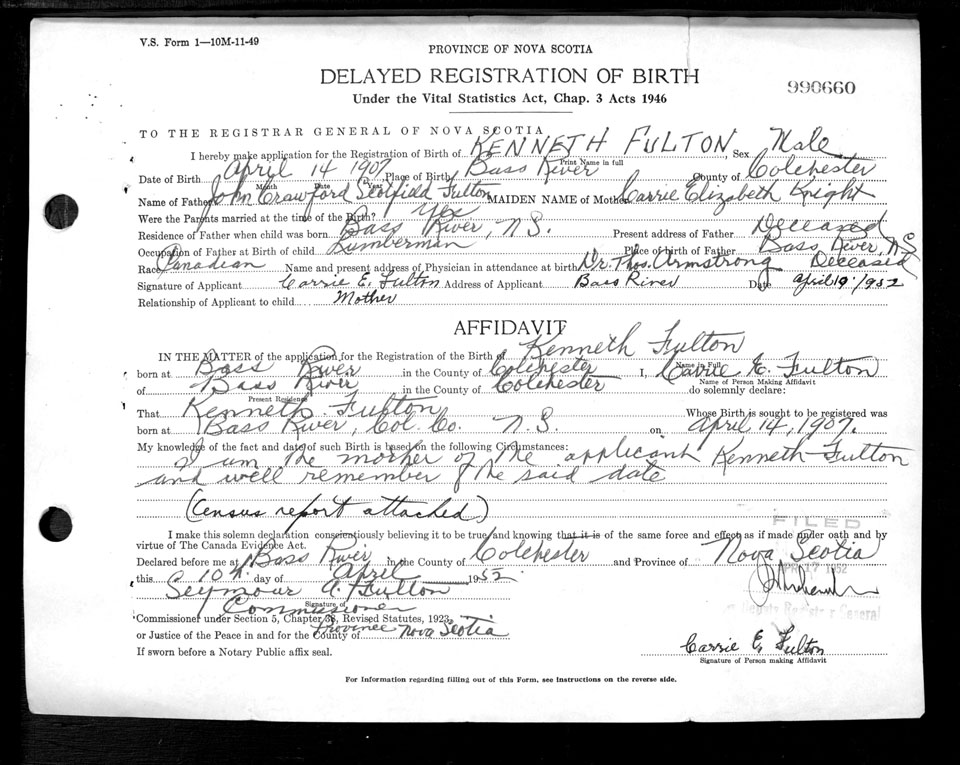 V.S. Form 1—10M-11-49
PROVINCE OF NOVA SCOTIA
DELAYED REGISTRATION OF BIRTH
990660
Under the Vital Statistics Act, Chap. 3 Acts 1946
TO THE REGISTRAR GENERAL OF NOVA SCOTIA
I hereby make application for the Registration of Birth of KENNETH FULTON, Sex Male
Print Name in full
Date of Birth April 14 1907 Place of Birth Bass River County of Colchester
Month Date Year
Name of Father John Crawford Scofield Fulton MAIDEN NAME of Mother Carrie Elizabeth Knight
Were the Parents married at the time of the Birth? Yes
Residence of Father when child was born Bass River, N.S. Present address of Father Deceased
Occupation of Father at Birth of child Lumberman Place of birth of Father Bass River, N.S.
Race Canadian Name and present address of Physician in attendance at birth Dr. Thos. Armstrong Deceased
Signature of Applicant Carrie E. Fulton Address of Applicant Bass River Date April 19 1952
Relationship of Applicant to child Mother
AFFIDAVIT
IN THE MATTER of the application for the Registration of Birth of Kenneth Fulton
Name in Full
born at Bass River in the County of Colchester I, Carrie E. Fulton
Name of Person Making Affidavit
of Bass River in the County of Colchester do solemnly declare:
Present Residence
That Kenneth Fulton Whose Birth is sought to be registered was
born at Bass River, Col. Co. N.S. on April 14, 1907.
My knowledge of the fact and date of such Birth is based on the following Circumstances:
I am the mother of the applicant Kenneth Fulton
and well remember the said date
(Census report attached)
FILED
I make this solemn declaration conscientiously believing it to be true and knowing that it is of the same force and effect as if made under oath and by
virtue of The Canada Evidence Act.
Declared before me at Bass River in the County of Colchester and Province of Nova Scotia
this 10th day of April 1952
17 1952
Seymour A. Fulton
Signature of
Commissioner
Registrar General
Commissioner under Section 5, Chapter 36, Revised Statutes, 1923
or Justice of the Peace in and for the County of Province Nova Scotia
If sworn before a Notary Public affix seal.
Carrie E. Fulton
Signature of Person making Affidavit
For Information regarding filling out of this Form, see instructions on the reverse side.